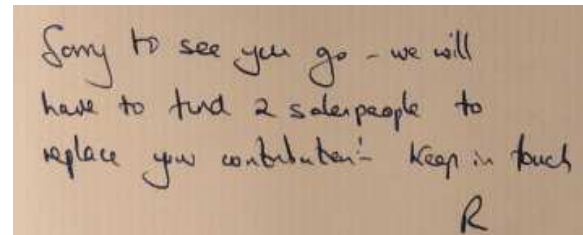 Sorry to see you go - we will
have to find 2 salespeople to
replace your contribution! Keep in touch
R